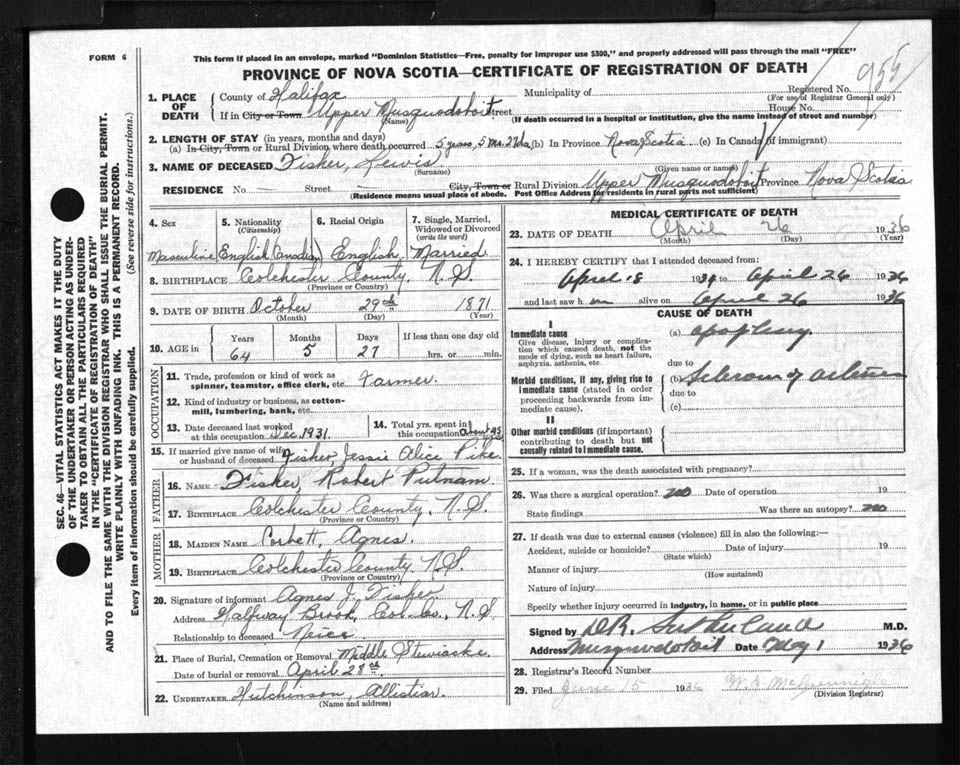 955
FORM 6
This form if placed in an envelope, marked "Dominion Statistics—Free, penalty for improper use $300," and properly addressed will pass through the mail "FREE"
PROVINCE OF NOVA SCOTIA—CERTIFICATE OF REGISTRATION OF DEATH
SEC. 46—VITAL STATISTICS ACT MAKES IT THE DUTY
OF THE UNDERTAKER OR PERSON ACTING AS UNDER-
TAKER TO OBTAIN ALL THE PARTICULARS REQUIRED
IN THE "CERTIFICATE OF REGISTRATION OF DEATH"
AND TO FILE THE SAME WITH THE DIVISION REGISTRAR WHO SHALL ISSUE THE BURIAL PERMIT.
WRITE PLAINLY WITH UNFADING INK. THIS IS A PERMANENT RECORD.
Every item of information should be carefully supplied. (See reverse side for instructions.)
1. PLACE OF DEATH
County of Halifax Municipality of Registered No.
(For use of Registrar General only)
If in City or Town Upper Musquodoboit Street House No.
(Name) (If death occurred in a hospital or institution, give the name instead of street and number)
2. LENGTH OF STAY (in years, months and days)
(a) In City, Town or Rural Division where death occurred 5 years, 5 Mos. 27 da (b) In Province Nova Scotia (c) In Canada (if immigrant)
3. NAME OF DECEASED Fisher, Lewis
(Surname) (Given name or names)
RESIDENCE No. Street City, Town or Rural Division Upper Musquodoboit Province Nova Scotia
(Residence means usual place of abode. Post Office Address for residents in rural parts not sufficient)
4. Sex
Masculine
5. Nationality
(Citizenship)
English Canadian
6. Racial Origin
English
7. Single, Married,
Widowed or Divorced
(write the word)
Married
8. BIRTHPLACE Colchester County, N.S.
(Province or Country)
9. DATE OF BIRTH October 29th 1871
(Month) (Day) (Year)
10. AGE in
Years Months Days If less than one day old
64 5 27 hrs. or min.
OCCUPATION
11. Trade, profession or kind of work as
spinner, teamster, office clerk, etc. Farmer.
12. Kind of industry or business, as cotton-
mill, lumbering, bank, etc.
13. Date deceased last worked
at this occupation Dec. 1931.
14. Total yrs. spent in
this occupation About 45
15. If married give name of wife
or husband of deceased Fisher, Jessie Alice Pike.
FATHER
16. NAME Fisher, Robert Putnam.
17. BIRTHPLACE Colchester County, N.S.
(Province or Country)
MOTHER
18. MAIDEN NAME Corbett, Agnes.
19. BIRTHPLACE Colchester County N.S.
(Province or Country)
20. Signature of informant Agnes J. Fisher.
Address Halfway Brook, Col. Co., N.S
Relationship to deceased Neice
21. Place of Burial, Cremation or Removal Middle Stewiacke
Date of burial or removal April 28th
22. UNDERTAKER Hutchinson, Allistiar.
(Name and address)
MEDICAL CERTIFICATE OF DEATH
23. DATE OF DEATH April 26 1936
(Month) (Day) (Year)
24. I HEREBY CERTIFY that I attended deceased from:
April 18 1936 to April 26 1936
and last saw h im alive on April 26 1936
CAUSE OF DEATH
I
Immediate cause
Give disease, injury or complica-
tion which caused death, not the
mode of dying, such as heart failure,
asphyxia, asthenia, etc.
(a) apoplexy
due to
Morbid conditions, if any, giving rise to
immediate cause (stated in order
proceeding backwards from im-
mediate cause).
(b) Sclerosis of arteries
due to
(c)
II
Other morbid conditions (if important)
contributing to death but not
causally related to immediate cause.
25. If a woman, was the death associated with pregnancy?
26. Was there a surgical operation? no Date of operation 19
State findings Was there an autopsy? no
27. If death was due to external causes (violence) fill in also the following:—
Accident, suicide or homicide? Date of injury 19
(State which)
Manner of injury
(How sustained)
Nature of injury
Specify whether injury occurred in industry, in home, or in public place
Signed by D.R. Sutherland M.D.
Address Musquodoboit Date May 1 1936
28. Registrar's Record Number
29. Filed June 15 1936
(Division Registrar)